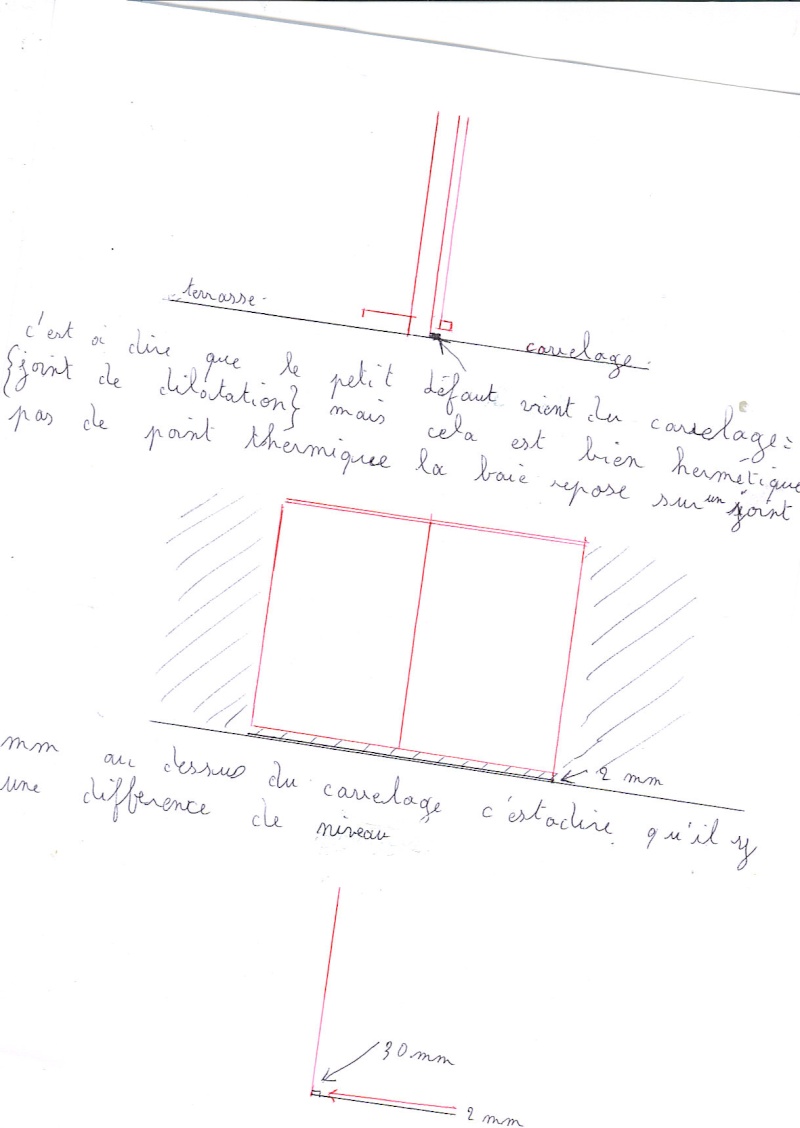 terrasse.
carrelage.
c'est à dire que le petit défaut vient du carrelage =
{joint de dilatation} mais cela est bien hermétique
pas de point thermique la baie repose sur un joint
2 mm
mm au dessus du carrelage c'estadire qu'il y
une difference de niveau
30 mm
2 mm